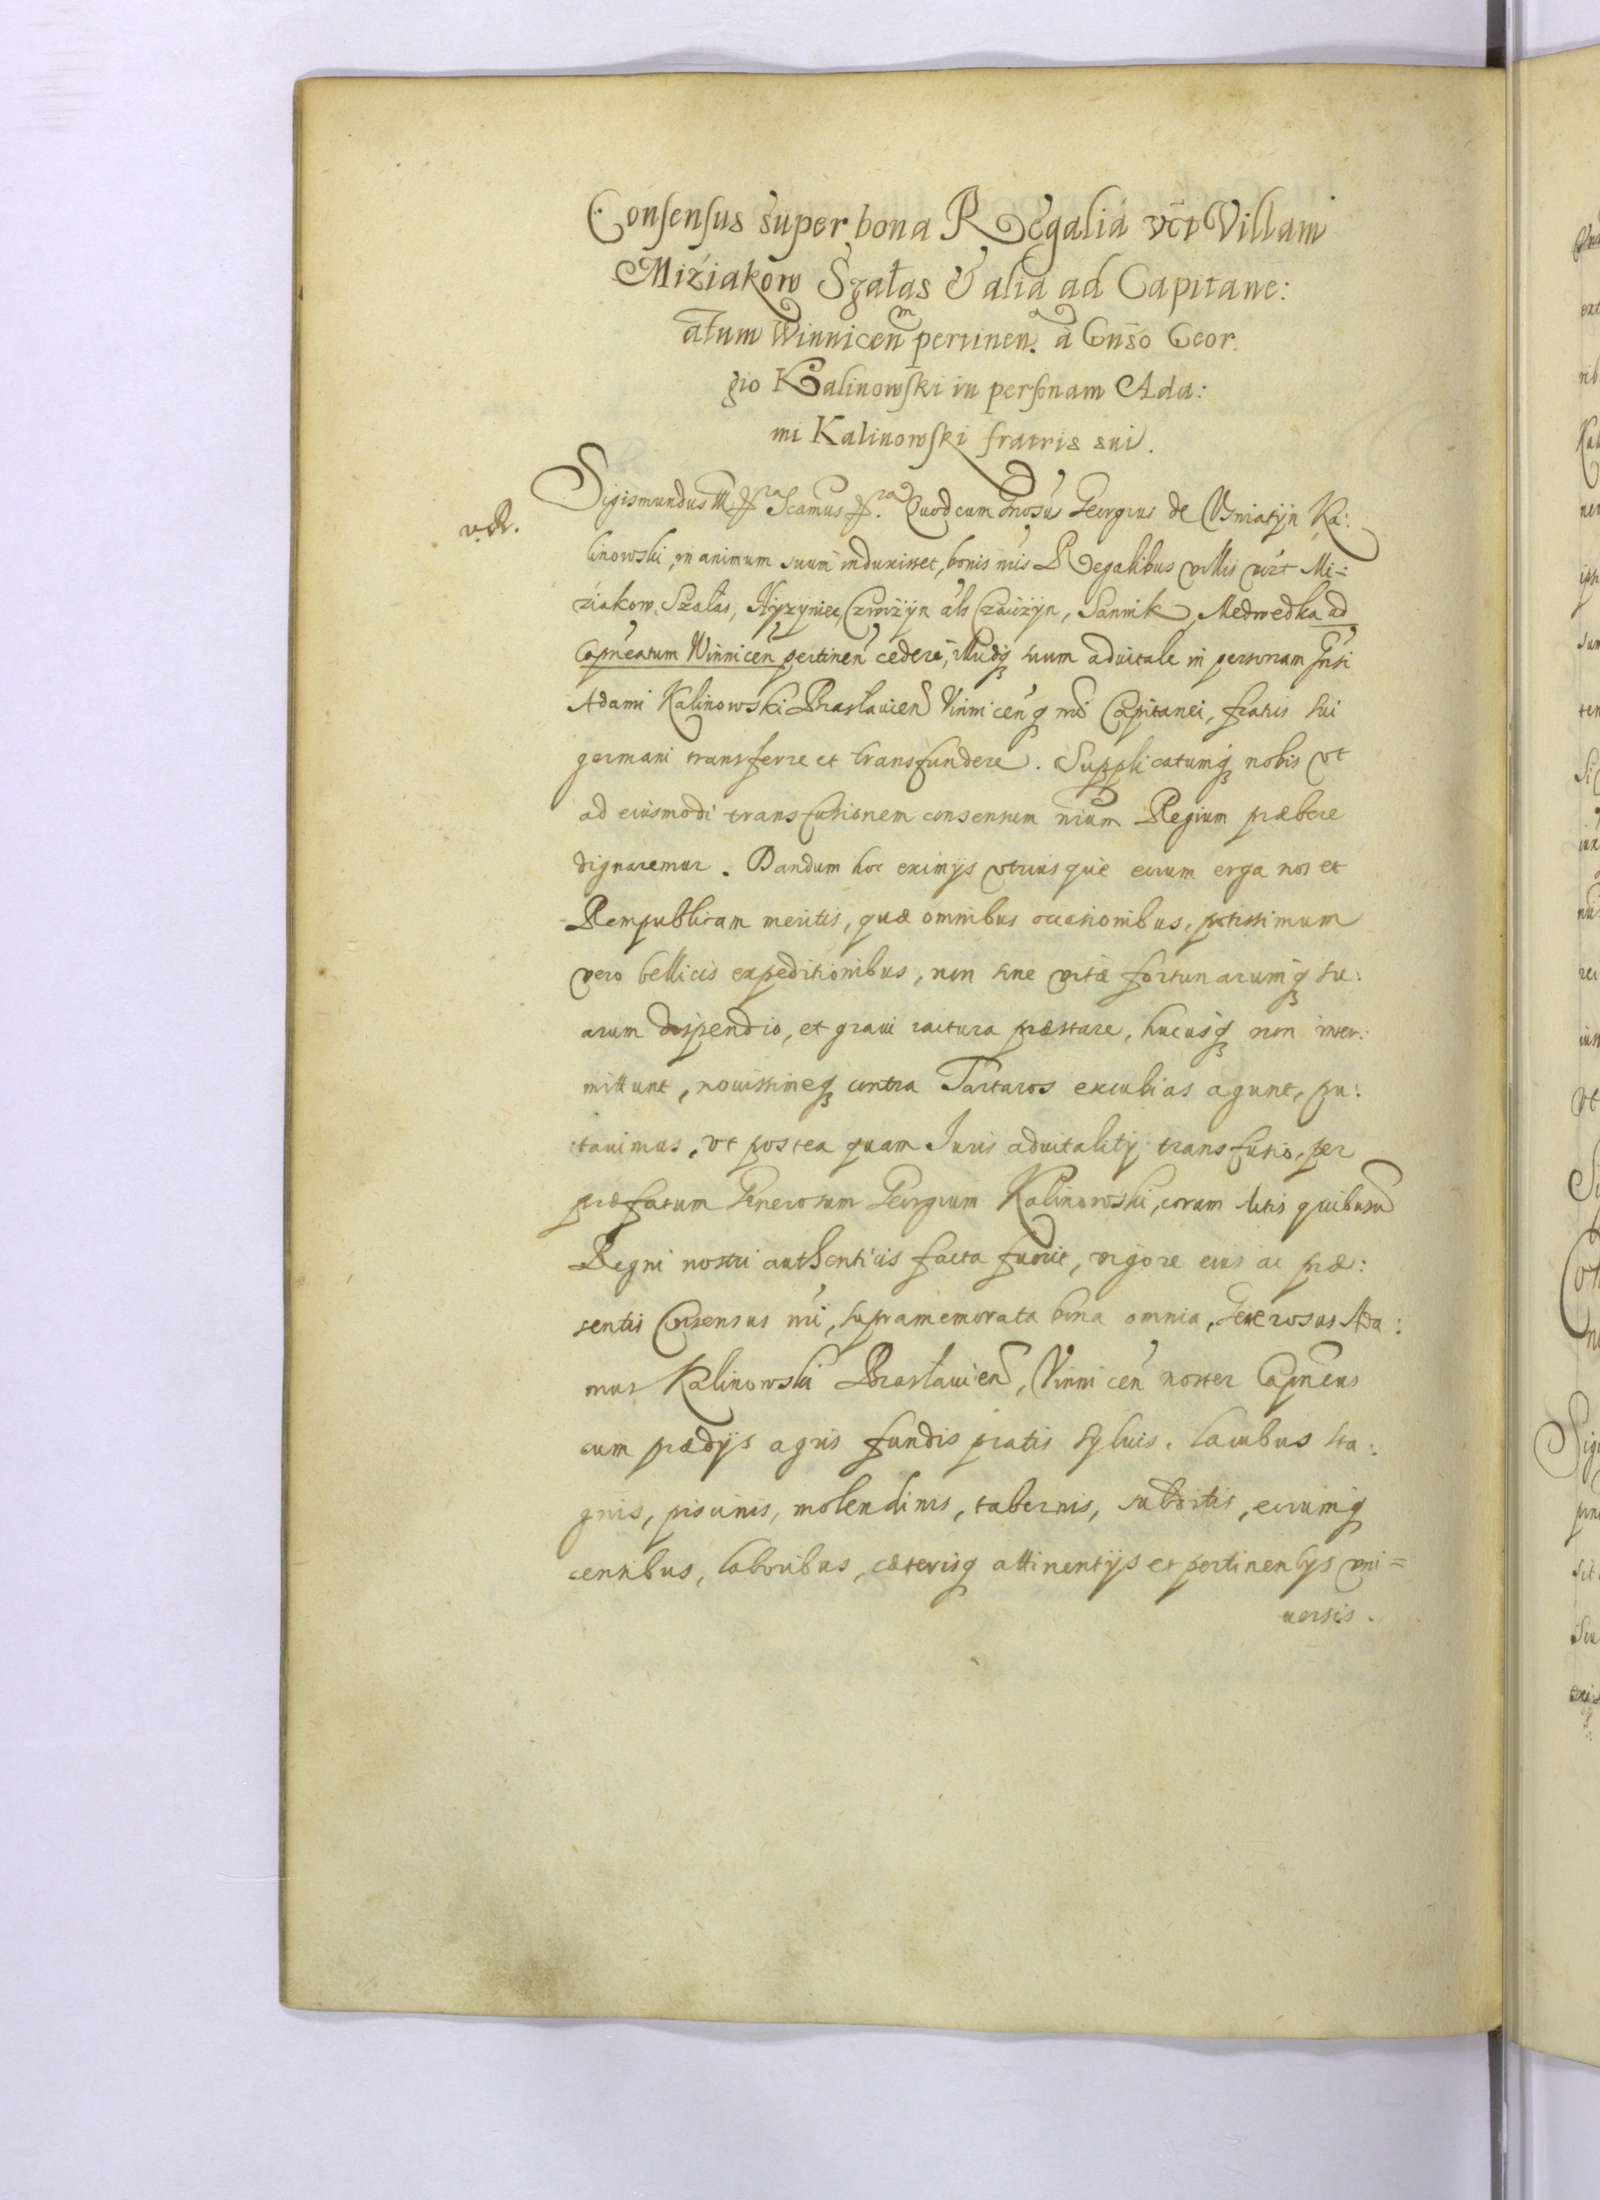 Consensus super bona Regalia vct Villam
Miziakow Szałas & alia ad Capitane:
atum Winnicen pertinen. a Gnso Geor.
gio Kalinowski in personam Ada:
mi Kalinowski fratris sui.
v.R.
Sigismundus III Scamus Quod cum Gnosus Georgius de Vsniatÿn Ka:
linowski, in animum suum induxisset, bonis nris Regalibus villis vizt Mi=
ziakow, Szałas, als Sannik, Medwedka ad
Capneatum Winnicen pertinen cedere, illudq suum aduitale in personam Gnsi
Adami Kalinowski Brasłauien Vinnicenq nri Capitanei, fratris sui
germani transferre et transfundere. Supplicatumq nobis vt
ad eiusmodi transfusionem consensum nrum Regium præbere
dignaremur. Dandum hoc eximÿs vtriusque eorum erga nos et
Rempublicam meritis, quæ omnibus occasionibus, potissimum
vero bellicis expeditionibus, non sine vitæ fortunarumq su:
arum dispendio, et graui iactura præstare, hucusq non inter:
mittunt, nouissimeq contra Tartaros excubias agunt, pu:
tauimus, vt postea quam Iuris aduitalitÿ transfusio, per
præfatum Generosum Georgium Kalinowski, coram Actis quibusuis
Regni nostri authenticis facta fuerit, vigore eius ac præ:
sentis Consensus nri, supramemorata bona omnia, Generosus Ada:
mus Kalinowski Brasłauien, Vinnicen noster Capneus
cum prædÿs agris fundis pratis sÿluis. lacubus sta:
gnis, piscinis, molendinis, tabernis, subditis, eorumq
censibus, laboribus, cæterisq attinentÿs et pertinentÿs vni=
uersis.